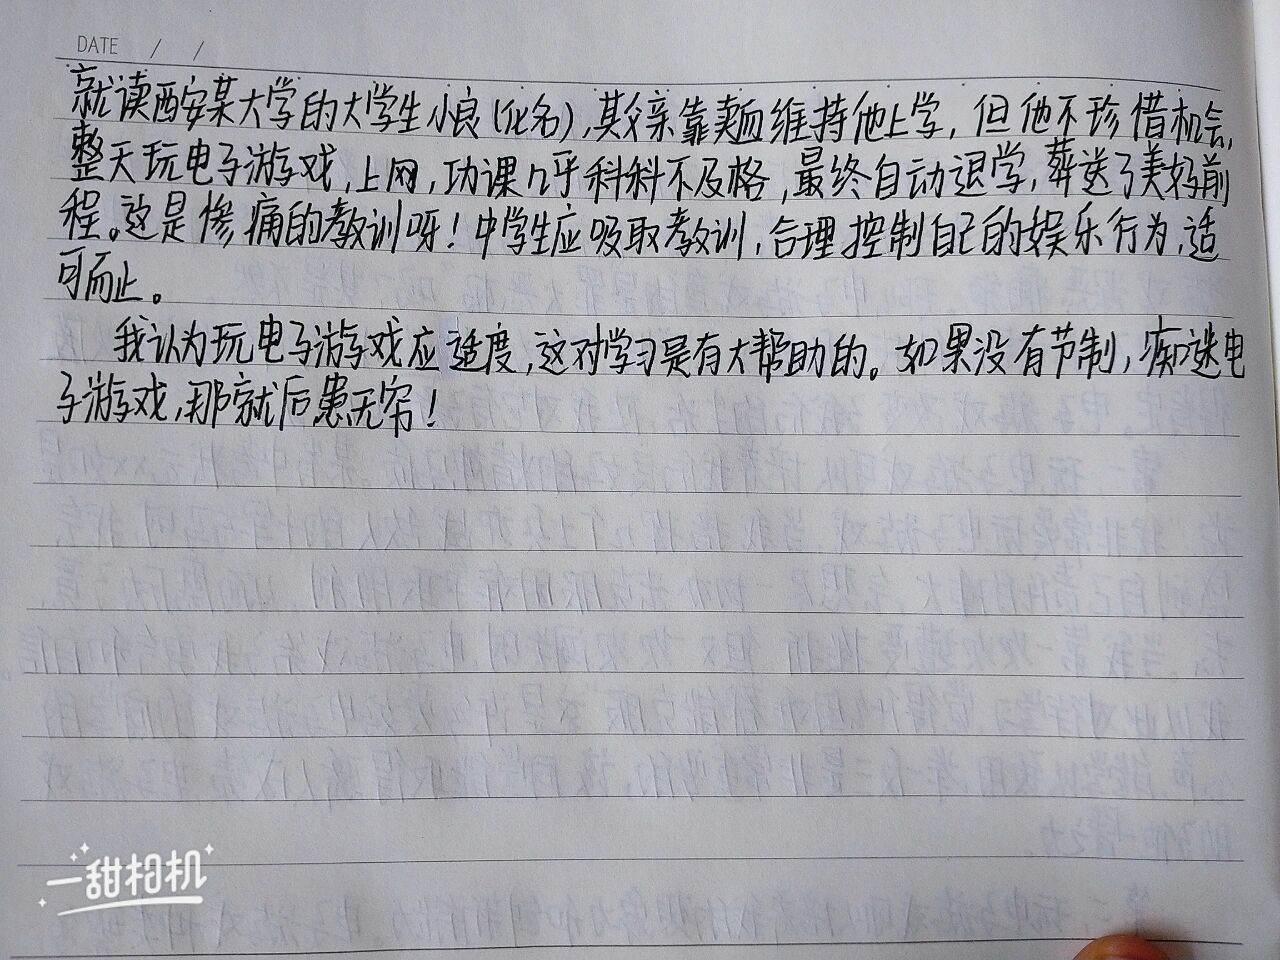 DATE / /
就读西安某大学的大学生小良(化名),其父亲靠卖血维持他上学,但他不珍惜机会,
整天玩电子游戏,上网,功课几乎科科不及格,最终自动退学,葬送了美好前
程。这是惨痛的教训呀!中学生应吸取教训,合理控制自己的娱乐行为,适
可而止。
我认为玩电子游戏应适度,这对学习是有大帮助的。如果没有节制,痴迷电
子游戏,那就后患无穷!
一甜相机